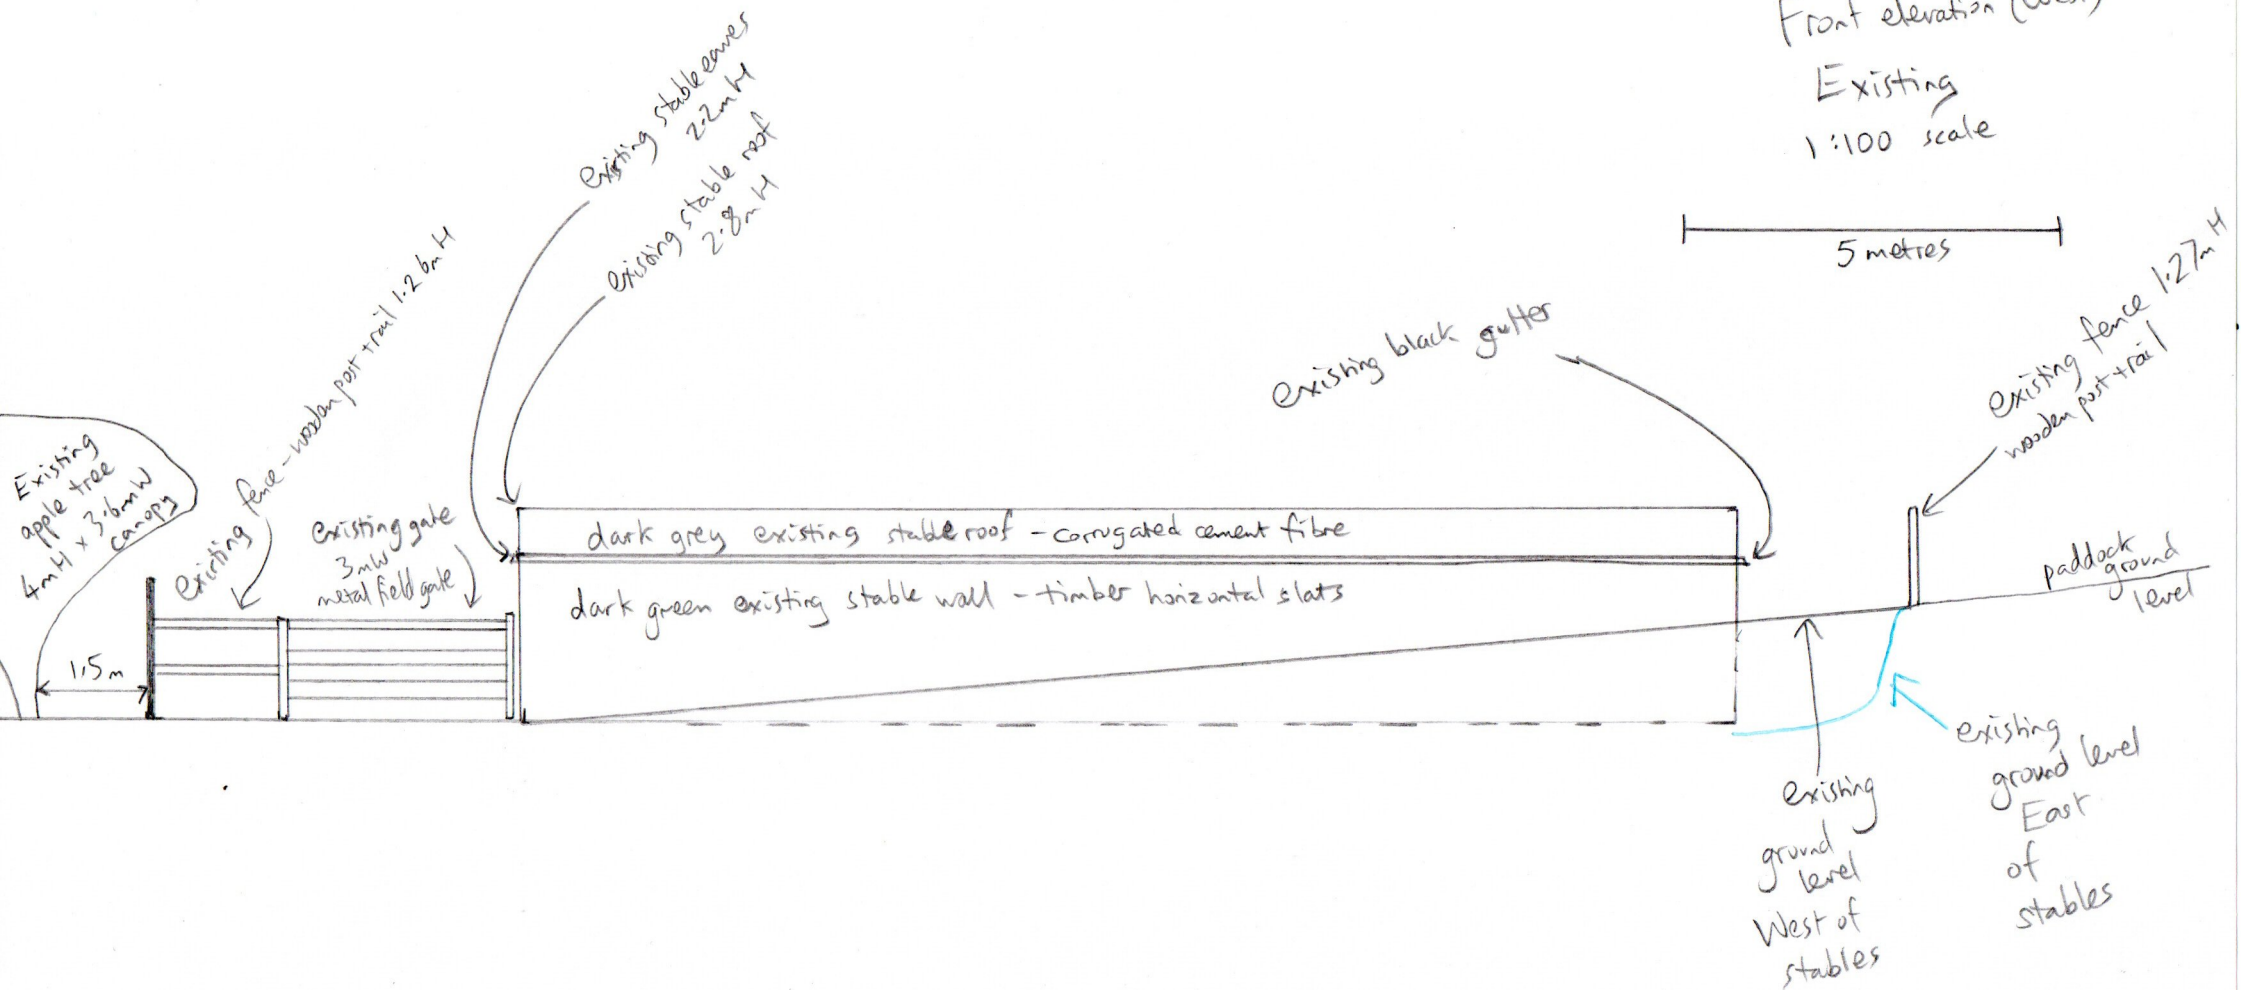 Front elevation (West)
Existing
1:100 scale
5 metres
existing stable eaves
2.2m H
existing stable roof
2.8m H
existing fence - wooden post + rail 1.26m H
Existing
apple tree
4mH x 3.6mW
canopy
1.5m
existing gate
3mW
metal field gate
existing black gutter
existing fence 1.27m H
wooden post + rail
dark grey existing stable roof - corrugated cement fibre
dark green existing stable wall - timber horizontal slats
paddock
ground
level
existing
ground
level
West of
stables
existing
ground level
East
of
stables